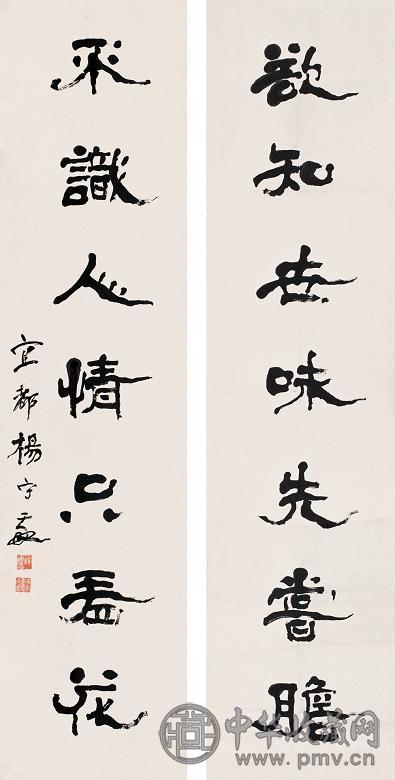 欲知世味先嘗膽
不識人情只看花
宜都楊守敬
中华收藏网
www.pmv.cn